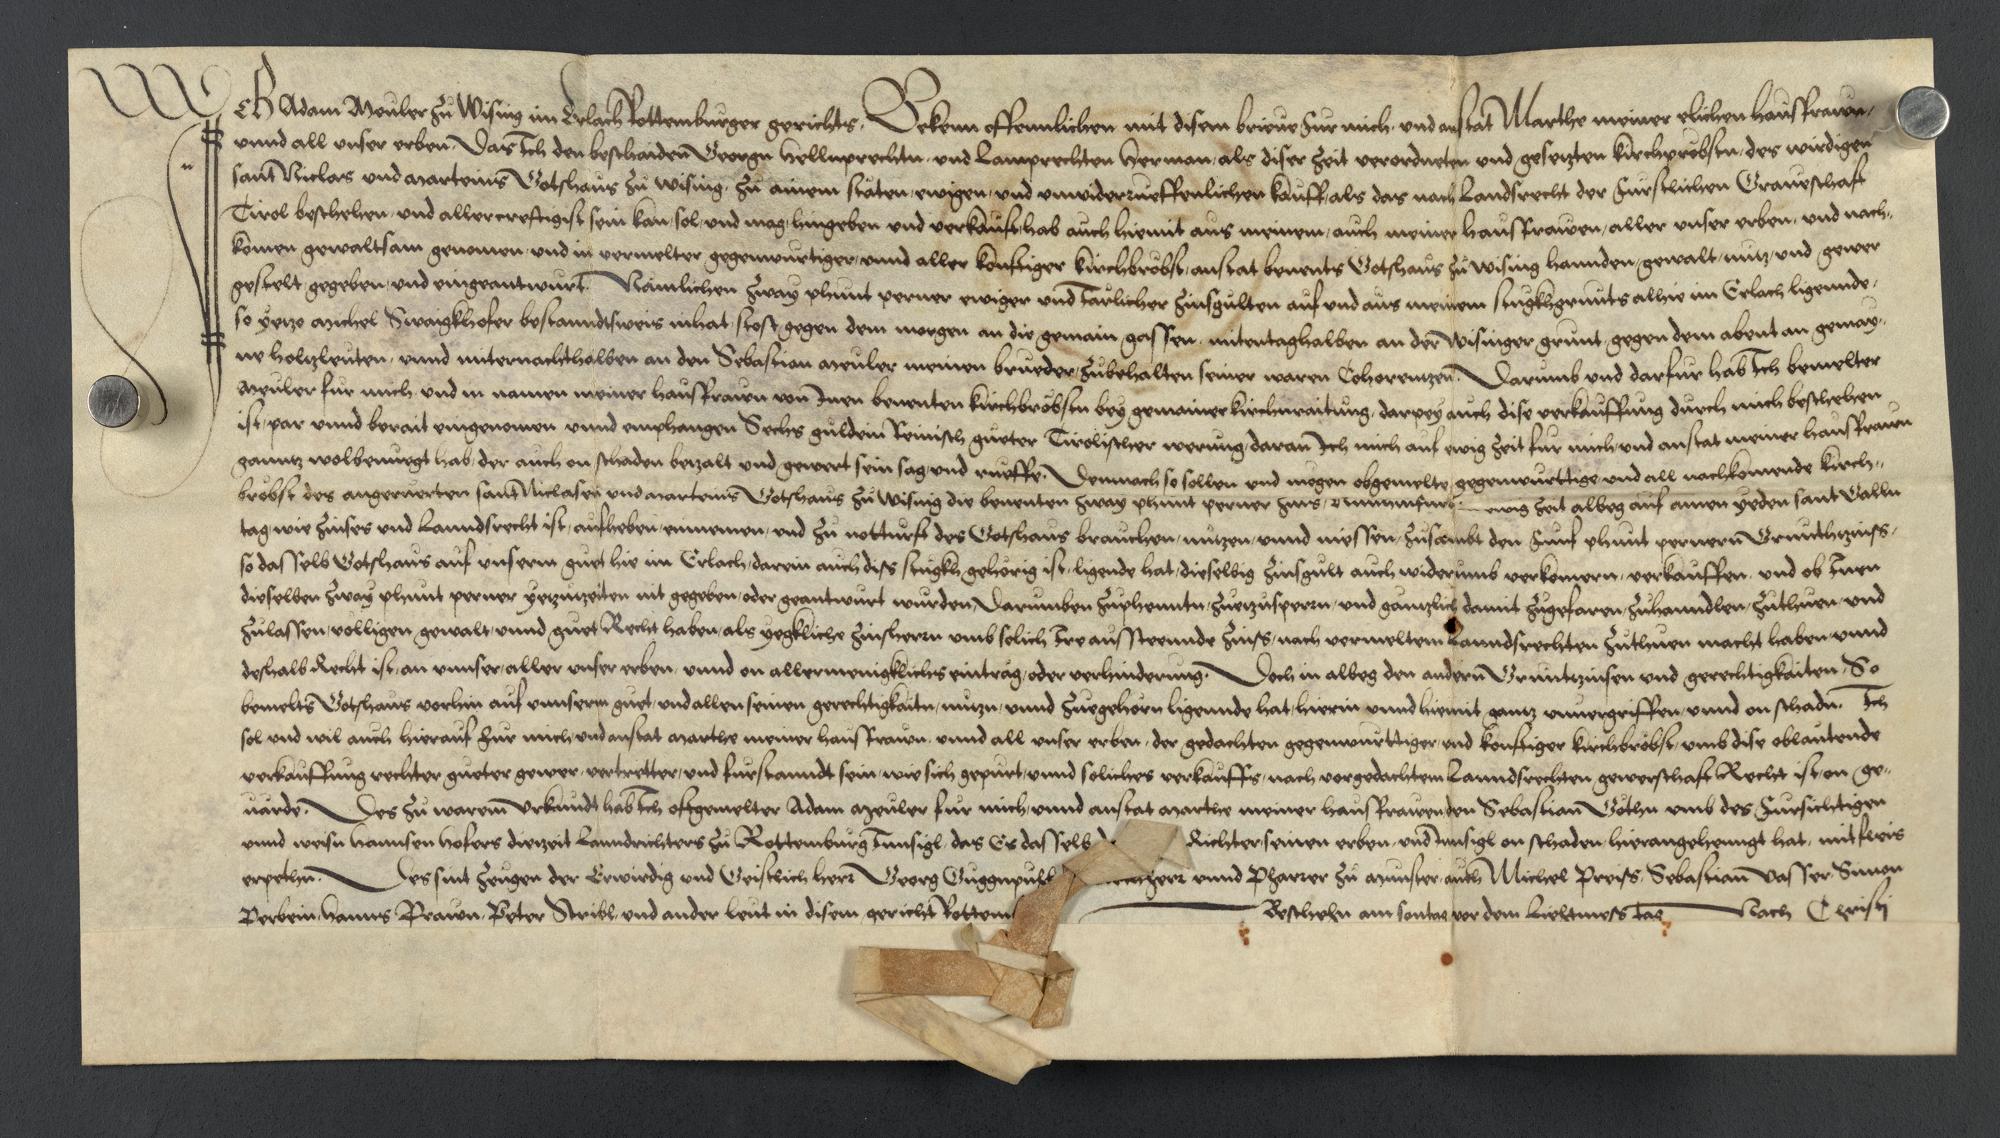 Ich Adam Meuler zu Wising im Erlach Rottemburger gerichts, Bekenn offennlichen mit disem brieve fur mich, und anstat Marthe meiner elichen hausfrauen,
unnd all unser erben, Das Ich den beschaiden Georgn Hellnprechtn, und Lamprechten Herman, als diser zeit verordneten und gesetzten kirchpröbstn, des wirdigen
sannt Niclas und Marteinns Gotshaus zu Wising, zu ainem stäten, ewigen, und unwiderrueffenlichen kauff, als das nach Landsrecht der Furstlichen Graveschaft
Tirol beschehen, und aller creftigist sein kan, sol, und mag, hingeben und verkauft, hab auch hiemit aus meinem, auch meiner hausfrauen, aller unser erben, und nach-
komen gewaltsam genomen, und in vermelter gegenwurtiger, unnd aller konftiger kirchbröbst, anstat benents Gotshaus zu Wising hannden, gewalt, nutz, und gewer
gestelt gegeben, und eingeantwurt. Nämlichen zway phunt perner ewiger und Järlicher zinsgulten auf und aus meinem stugkhgrunts alhie im Erlach ligennde,
so yetzo Michel Swaigkhofer bestanndtsweis inhat, stost gegen dem morgen an die gemain gassen, mitentaghalben an der Wisinger grunt, gegen dem abent an gemay-
ne holtzleuten, unnd miternachthalben an den Sebastian Meuler meinen brueder, zubehalten seiner waren Cohorentzen. Darumb und darfur hab Ich bemelter
Meuler fur mich, und in namen meiner hausfrauen von Inen benenten kirchbröbstn bey gemainer kirchnraitung, darpey auch dise verkauffung durch mich beschehen
ist, par unnd berait eingenomen unnd emphangen Sechs guldein Reinisch gueter Tirolischer werung, daran Ich mich auf ewig zeit fur mich, und anstat meiner hausfrauen
ganntz wolbenuegt hab, der auch on schaden betzalt und gewert sein sag, und rueffe. Demnach so sollen und mögen obgemelte, gegenwurttige, und all nachkomende kirch-
bröbst des angeruerten sannt Niclasen und Marteinns Gotshaus zu Wising die benenten zway phunt perner zins, ewig zeit albeg auf ainen yeden sant Galln
tag, wie zinses und Lanndsrecht ist, aufheben, einnemen, und zu notturft des Gotshaus brauchen, nutzen, unnd niessen, zusambt den Funf phunt pernern Grunthzinss,
so dasselb Gotshaus auf unserm guet hie im Erlach, darein auch diss stugkh gehörig ist, ligende hat, dieselbig zinsgult auch widerumb verkomern, verkauffen, und ob Inen
dieselben zway phunt perner yetzuzeiten nit gegeben, oder geantwurt wurden, Darumben zuphenntn, zuetzusperrn, und gäntzlich damit zugefaren, zuhanndlen, zuthuen, und
zulassen, volligen gewalt, unnd guet Recht haben, als yegkliche zinsherrn umb solich Ire aussteennde zinss, nach vermeltem Lanndsrechten zuthuen macht haben, unnd
deshalb Recht ist, an unnser, aller unser erben, unnd on allermenigklichs eintrag, oder verhinderung. Doch in albeg den andern Gruntzinsen und gerechtigkaiten, So
bemelts Gotshaus vorhin auf unnserm guet, und allen seinen gerechtigkaitn, nutzn, unnd Zuegehorn ligennde hat, hierin unnd hiemit gantz unvergriffen, unnd on schadn. Ich
sol und wil auch hierauf fur mich, und anstat Marthe meiner hausfrauen, unnd all unser erben, der gedachten gegenwurttiger, und konftiger kirchbröbst, umb dise oblautende
verkauffung rechter gueter gewer, vertretter, und furstanndt sein, wie sich gepurt, unnd soliches verkauffs, nach vorgedachtem Lanndsrechten, gewerschaft Recht ist, on ge-
värde. Des zu warem Urkundt hab Ich oftgemelter Adam Meuler fur mich, unnd anstat Marthe meiner hausfrauen den Sebastian Göthn umb des Fursichtigen
unnd weisn Hannsen Hofers dietzeit Lanndrichters zu Rottemburg Innsigl, das Er dasselb Richter, seinen erben, und Innsigl on schaden, hierangehenngt hat, mit fleis
erpethn. Des sint zeugen der Erwirdig und Geistlich herr Georg unnd Pharrer zu Munster, auch Michel Preiss, Sebastian Vasser, Simon
Berbein, Hanns Praun, Peter Stribl, und ander leut in disem gericht Rottem Beschehn am sontag vor dem Liehtmess tag Nach Christj